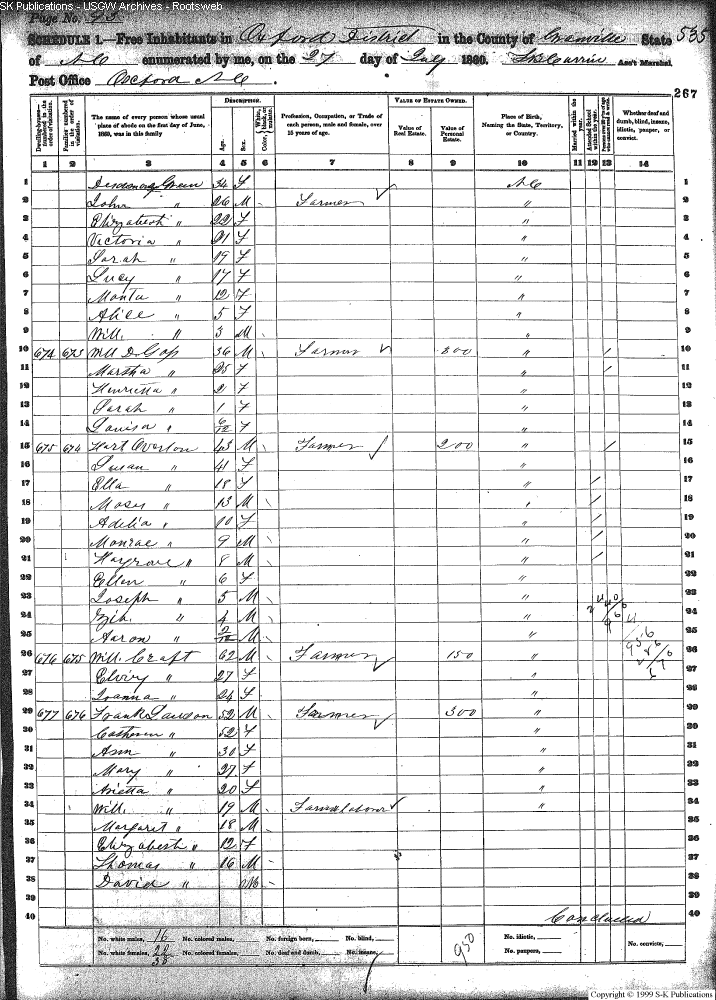 SK Publications - USGW Archives - Rootsweb
Page No.
SCHEDULE 1.—Free Inhabitants in Oxford District in the County of Granville State 535
of NC enumerated by me, on the 27 day of July 1860. Ass't Marshal
Post Office Oxford N C.
267
Dwelling-houses—numbered in the order of visitation.
Families numbered in the order of visitation.
The name of every person whose usual place of abode on the first day of June, 1860, was in this family
DESCRIPTION.
Age.
Sex.
White, black, or mulatto.
Profession, Occupation, or Trade of each person, male and female, over 15 years of age.
VALUE OF ESTATE OWNED.
Value of Real Estate.
Value of Personal Estate.
Place of Birth, Naming the State, Territory, or Country.
Married within the year.
Attended School within the year.
Whether deaf and dumb, blind, insane, idiotic, pauper, or convict.
1 2 3 4 5 6 7 8 9 10 11 12 13 14
1 Green 34 F NC 1
2 John " 26 M Farmer " 2
3 Elizabeth " 22 F " 3
4 Victoria " 21 F " 4
5 Sarah " 19 F " 5
6 Lucy " 17 F " 6
7 Monta " 12 F " 7
8 Alice " 5 F " 8
9 Will. " 3 M " 9
10 674 673 36 M Farmer 800 " / 10
11 Marsha " 25 F " / 11
12 Henrietta " 2 F " 12
13 Sarah " 1 F " 13
14 Louisa " 6/12 F " 14
15 675 674 Hart Overton 43 M Farmer 200 " / 15
16 Susan " 41 F " 16
17 Ella " 18 F " / 17
18 Moses " 13 M " / 18
19 Adelia " 10 F " / 19
20 Monroe " 9 M " / 20
21 Hargrove " 8 M " / 21
22 Ellen " 6 F " 22
23 Joseph " 5 M " 23
24 " 4 M " 24
25 Aaron " M " 25
26 676 675 Will. Craft 62 M Farmer 150 " 26
27 Elviry " 27 F " 27
28 Joanna " 24 F " 28
29 677 676 Frank Lawson 52 M Farmer 300 " 29
30 " 52 F " 30
31 Ann " 30 F " 31
32 Mary " 27 F " 32
33 Arietta " 20 F " 33
34 Will. " 19 M Farm labour " 34
35 Margaret " 18 M 35
36 Elizabeth " 12 F 36
37 Thomas " 16 M 37
38 David " M 38
39 39
40 Concluded 40
No. white males, 16 No. colored males, No. foreign born, No. blind, 950 No. idiotic, No. convicts,
No. white females, 22 No. colored females, No. deaf and dumb, No. insane, No. paupers,
38
Copyright © 1999 S-K Publications